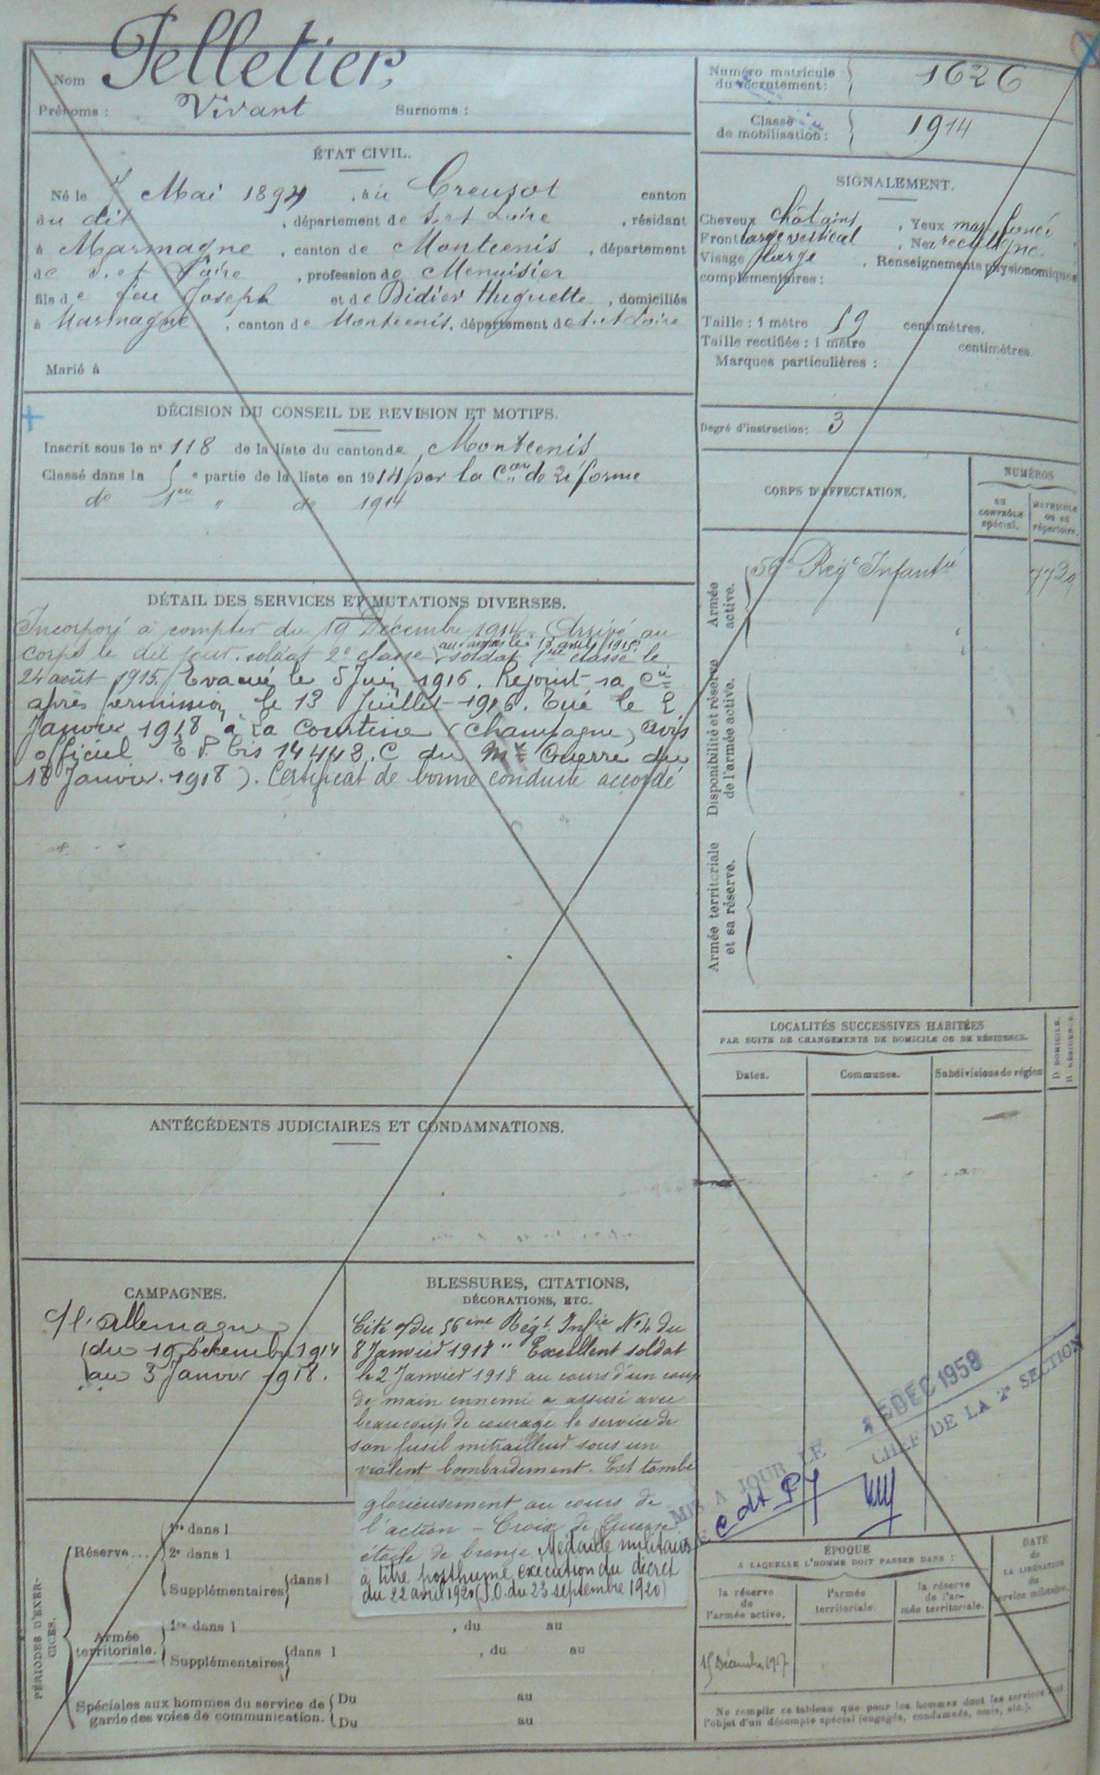 Nom Pelletier,
Prénoms : Vivant Surnoms :
ÉTAT CIVIL.
Né le 7 Mai 1894, à u Creusot canton
du dit, département de S. et Loire, résidant
à Marmagne, canton de Montcenis, département
de S. et Loire, profession de Menuisier
fils de feu Joseph et de Didier Huguette, domiciliés
à Marmagne, canton de Montcenis, département de S. et Loire
Marié à
DÉCISION DU CONSEIL DE REVISION ET MOTIFS.
Inscrit sous le n° 118 de la liste du canton de Montcenis
Classé dans la 5 e partie de la liste en 1914 par la Con de réforme
de 1ere " de 1914
DÉTAIL DES SERVICES ET MUTATIONS DIVERSES.
Incorporé à compter du 19 Décembre 1914. Arrivé au
corps le dit jour. soldat 2e classe soldat 1ere classe le
aux armées le 13 avril 1915
24 août 1915. Evacué le 5 Juin 1916. Rejoint sa Cie
après permission le 13 Juillet 1916. Tué le 2
Janvier 1918 à La Courtine (Champagne) avis
officiel bis 14448. C du Mre Guerre du
18 Janvier 1918). Certificat de bonne conduite accordé
ANTÉCÉDENTS JUDICIAIRES ET CONDAMNATIONS.
CAMPAGNES.
C/ l'Allemagne
du 19 Décembre 1914
au 3 Janvier 1918.
BLESSURES, CITATIONS,
DÉCORATIONS, ETC.
Cité O/ du 56ème Régt Infie N° 4 du
8 Janvier 1918 " Excellent soldat
le 2 Janvier 1918 au cours d'un coup
de main ennemi a assuré avec
beaucoup de courage le service de
son fusil mitrailleur sous un
violent bombardement. Est tombé
glorieusement au cours de
l'action - Croix de Guerre
étoile de bronze Médaille militaire
à titre posthume exécution du décret
du 22 avril 1920 (J.O. du 23 septembre 1920)
PÉRIODES D'EXERCICES.
Réserve...
1re dans l
2e dans l
Supplémentaires dans l
Armée territoriale.
1re dans l , du au
Supplémentaires dans l , du au
Spéciales aux hommes du service de Du au
garde des voies de communication. Du au
Numéro matricule
du recrutement : 1626
Classe
de mobilisation : 1914
SIGNALEMENT.
Cheveux châtains, Yeux mar. foncé
Front large vertical, Nez rectiligne
Visage large. Renseignements physionomiques
complémentaires :
Taille : 1 mètre 59 centimètres.
Taille rectifiée : 1 mètre centimètres.
Marques particulières :
Degré d'instruction : 3
CORPS D'AFFECTATION.
NUMÉROS
AU CONTRÔLE spécial.
MATRICULE OU AU répertoire.
Armée active.
56e Régt Infantie 7729
Disponibilité et réserve de l'armée active.
Armée territoriale et sa réserve.
LOCALITÉS SUCCESSIVES HABITÉES
PAR SUITE DE CHANGEMENTS DE DOMICILE OU DE RÉSIDENCE.
Dates. Communes. Subdivisions de région
D. DOMICILE.
R. RÉSIDENCE.
MIS A JOUR LE
5 DEC 1958
CHEF DE LA 2e SECTION
ÉPOQUE
A LAQUELLE L'HOMME DOIT PASSER DANS :
la réserve de l'armée active.
l'armée territoriale.
la réserve de l'armée territoriale.
DATE de LA LIBÉRATION du service militaire.
15 Décembre 1917
Ne remplir ce tableau que pour les hommes dont les services font
l'objet d'un décompte spécial (engagés, condamnés, omis, etc.).